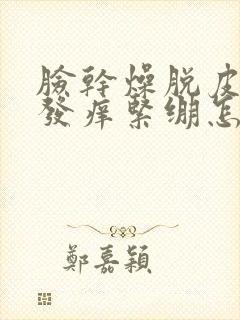 臉幹燥脫皮
發癢緊繃怎
鄭嘉穎